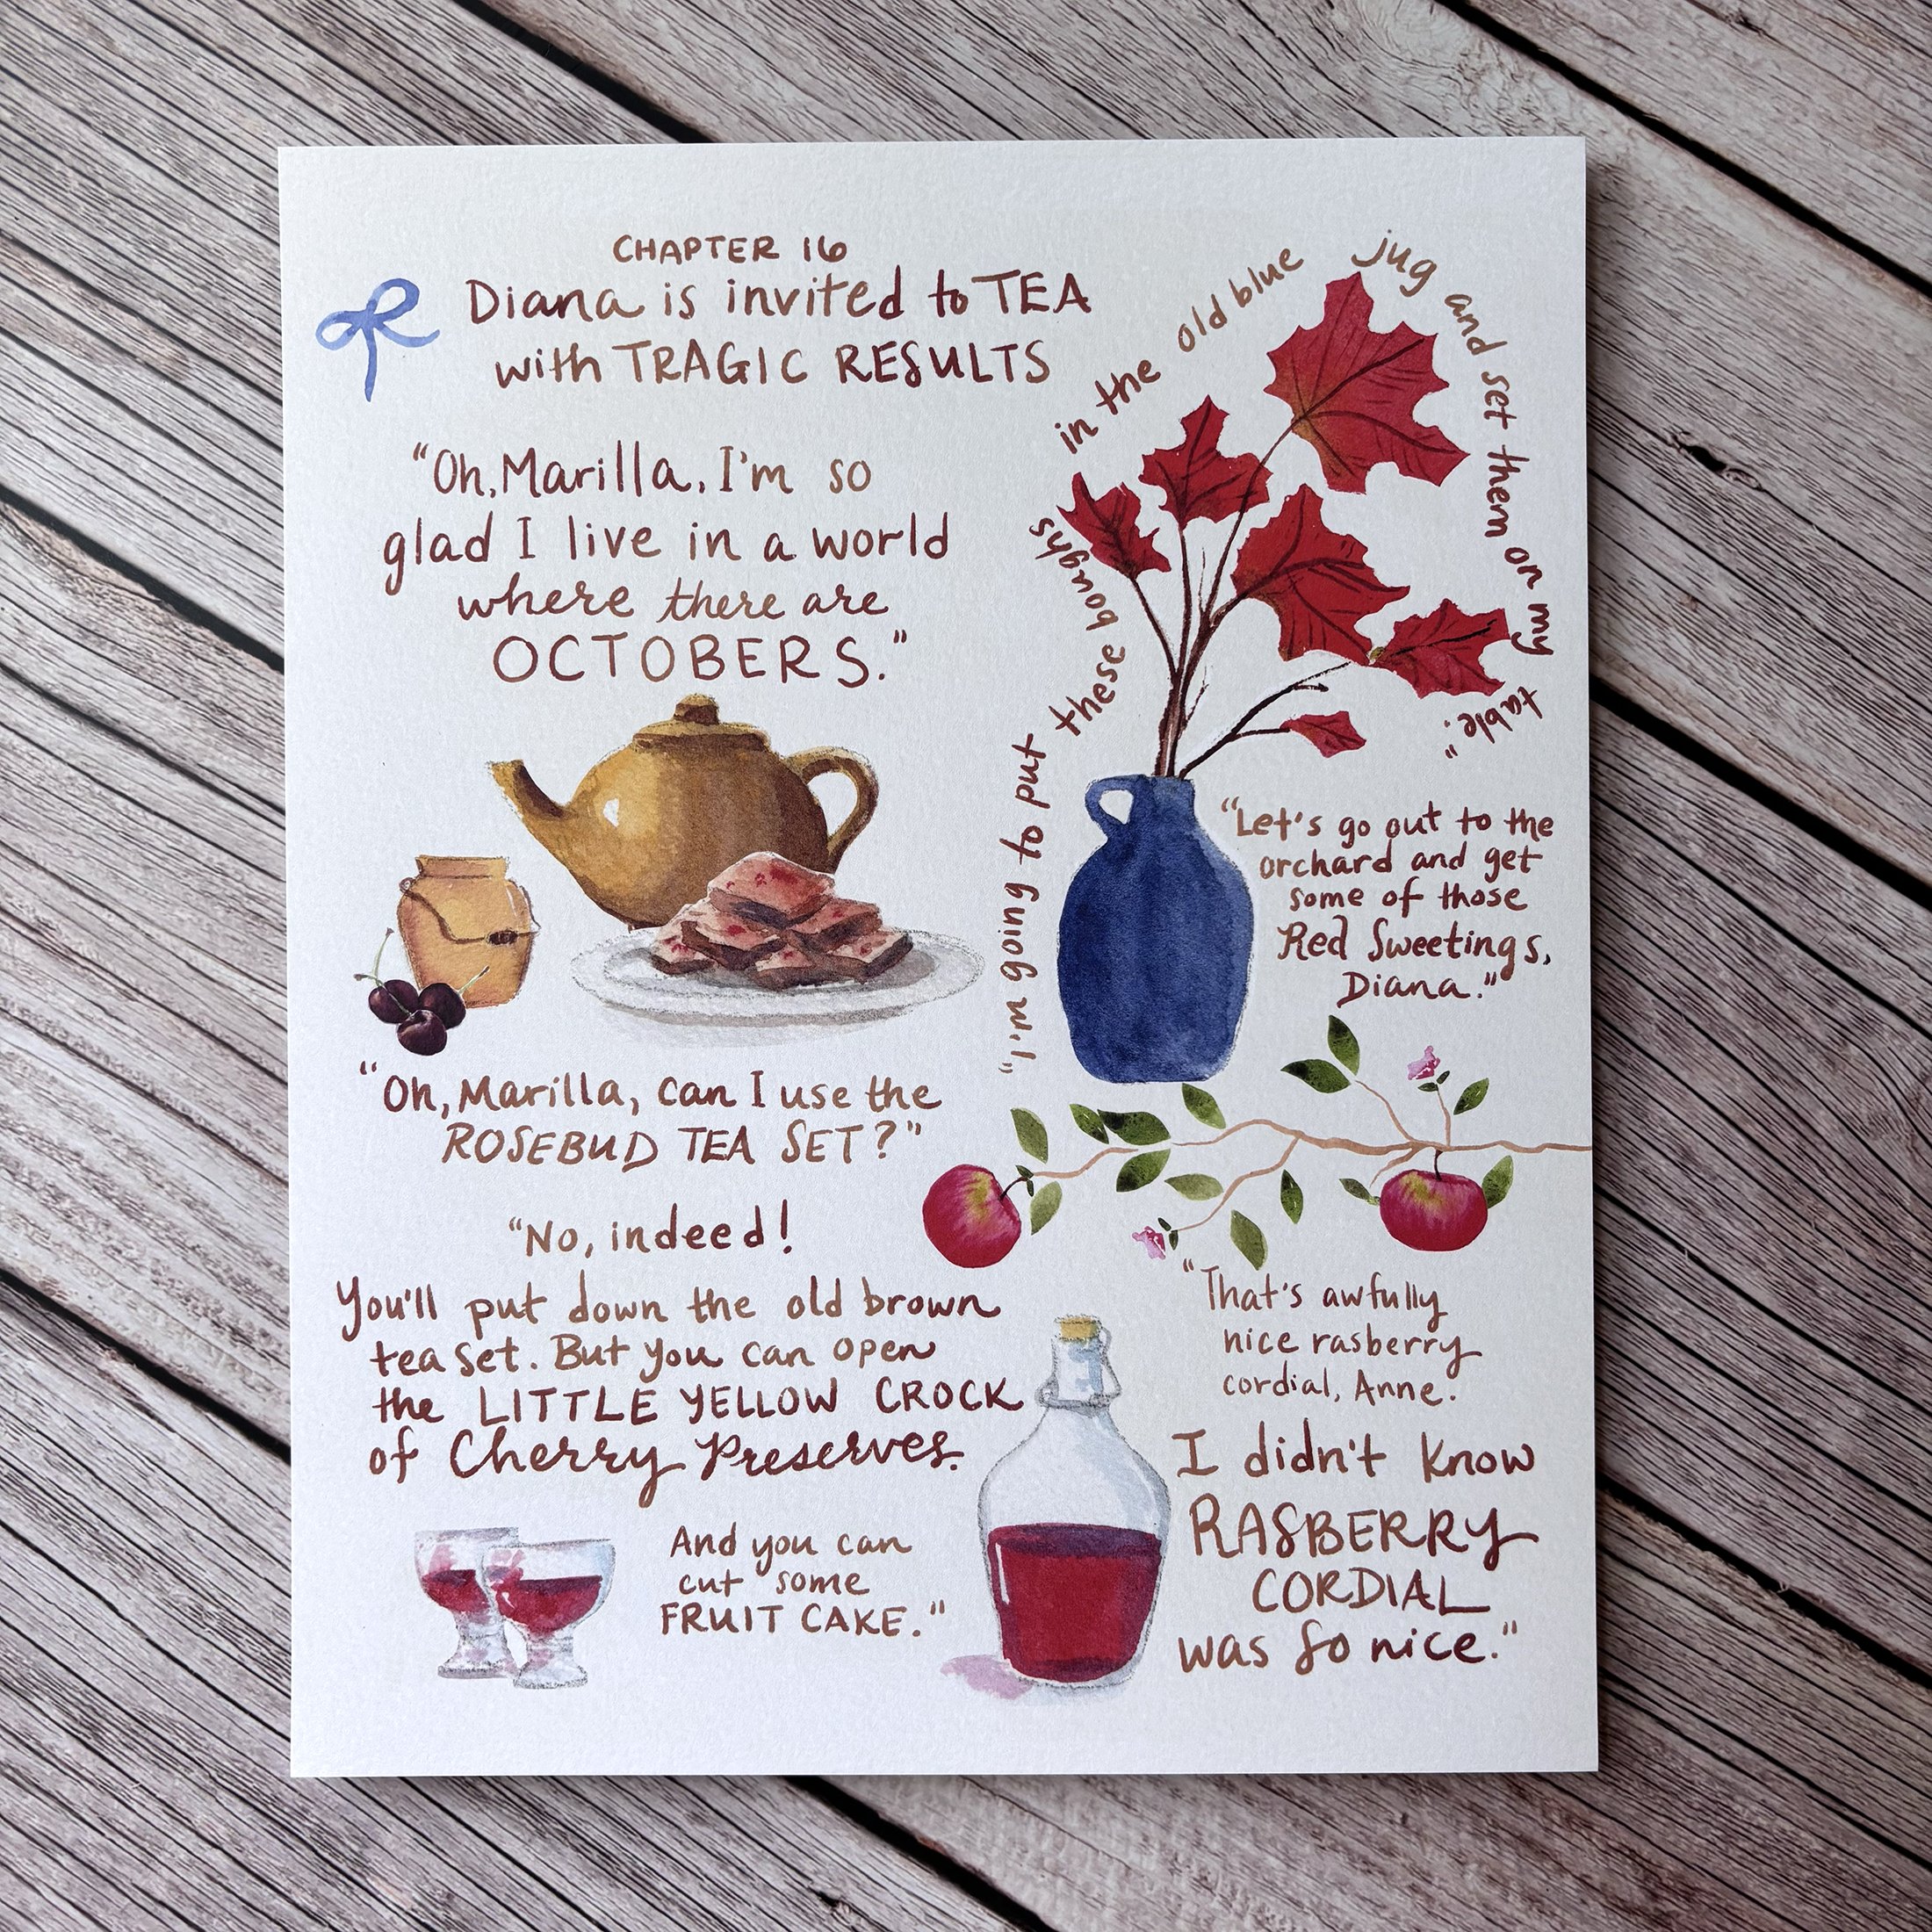 CHAPTER 16
Diana is invited to TEA
with TRAGIC RESULTS
"Oh, Marilla, I'm so
glad I live in a world
where there are
OCTOBERS."
"I'm going to put these boughs in the old blue jug and set them on my table."
"Let's go out to the
orchard and get
some of those
Red Sweetings,
Diana."
"Oh, Marilla, can I use the
ROSEBUD TEA SET?"
"No, indeed!
You'll put down the old brown
tea set. But you can open
the LITTLE YELLOW CROCK
of Cherry Preserves.
And you can
cut some
FRUIT CAKE."
"That's awfully
nice rasberry
cordial, Anne.
I didn't know
RASBERRY
CORDIAL
was so nice."